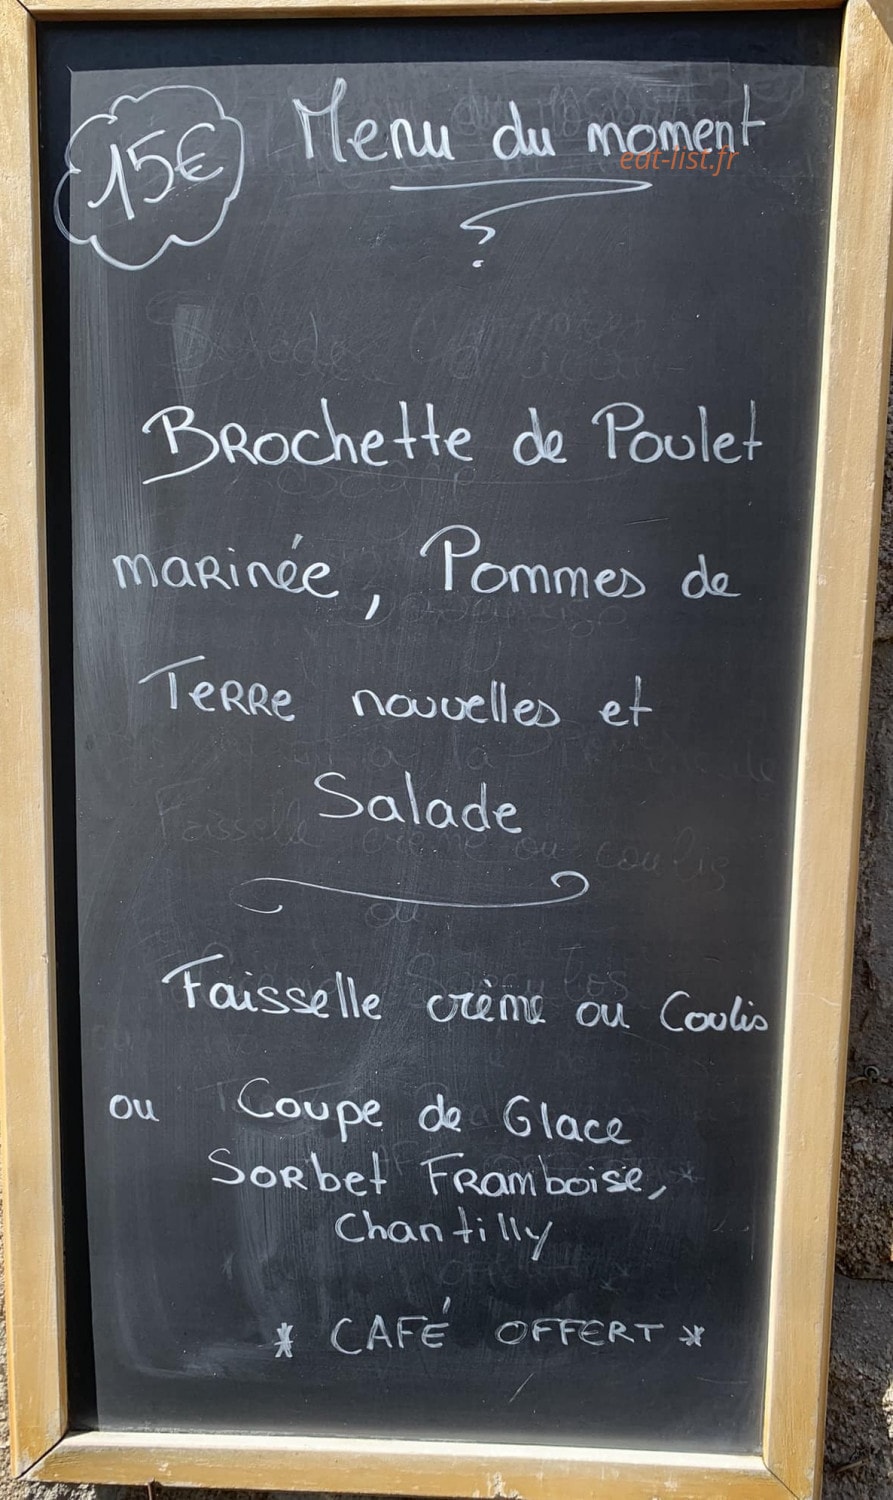 15€
Menu du moment
eat-list.fr
Brochette de Poulet
marinée, Pommes de
Terre nouvelles et
Salade
Faisselle crème ou Coulis
ou Coupe de Glace
Sorbet Framboise,
Chantilly
* CAFÉ OFFERT *